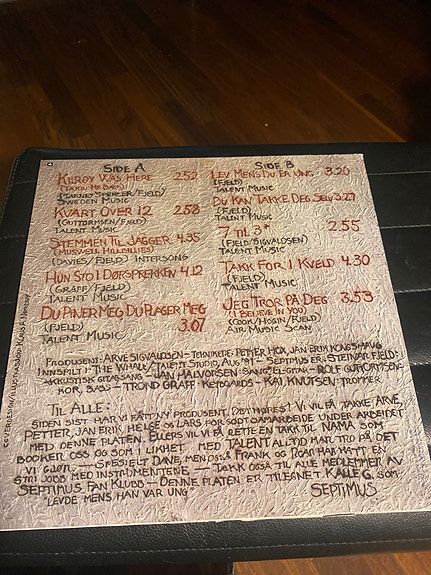 SIDE A
KILROY WAS HERE 2.52
(TAKK MR. BASH)
(CARNEY/SPENCER/FJELD)
SWEDEN MUSIC
KVART OVER 12 2.58
(GUTTORMSEN/FJELD)
TALENT MUSIC
STEMMEN TIL JAGGER 4.35
(MUSWELL HILLBILLIES)
(DAVIES/FJELD) INTERSONG
HUN STO I DØRSPREKKEN 4.12
(GRAFF/FJELD)
TALENT MUSIC
DU PINER MEG DU PLAGER MEG
(FJELD) 3.07
TALENT MUSIC
SIDE B
LEV MENS DU ER UNG 3.20
(FJELD)
TALENT MUSIC
DU KAN TAKKE DEG SELV 3.27
(FJELD)
TALENT MUSIC
7 TIL 3* 2.55
(FJELD/SIGVALDSEN)
TALENT MUSIC
TAKK FOR I KVELD 4.30
(FJELD)
TALENT MUSIC
JEG TROR PÅ DEG 3.53
(I BELIEVE IN YOU)
(COOK/HOGIN/FJELD)
AIR MUSIC SCAN
PRODUSENT: ARVE SIGVALDSEN – TEKNIKERE: PETTER HOX, JAN ERIK KONGSHAUG
INNSPILT: THE WHALL/TALENT STUDIO, AUG. '81 – SEPTIMUS ER: STEINAR FJELD:
AKKUSTISK GITAR, SANG – JAN HALVORSEN: SANG, EL-GITAR – ROLF GUTTORMSEN:
KOR, BASS – TROND GRAFF: KEYBOARDS – KAI KNUTSEN: TROMMER
TIL ALLE:
SIDEN SIST HAR VI FÅTT NY PRODUSENT. DET HØRES! VI VIL PÅ TAKKE ARVE,
PETTER, JAN ERIK, HELGE OG LARS FOR GODT SAMARBEIDE UNDER ARBEIDET
MED DENNE PLATEN. ELLERS VIL VI RETTE EN TAKK TIL NAMA SOM
BOOKER OSS OG SOM I LIKHET MED TALENT ALLTID HAR TRO PÅ DET
VI GJØR. – SPESIELT DANE, MEN OGSÅ FRANK OG ROAR HAR HATT EN
STRI JOBB MED INSTRUMENTENE – TAKK OGSÅ TIL ALLE MEDLEMMER AV
SEPTIMUS FAN KLUBB – DENNE PLATEN ER TILEGNET KALLE G. SOM
LEVDE MENS HAN VAR UNG
SEPTIMUS